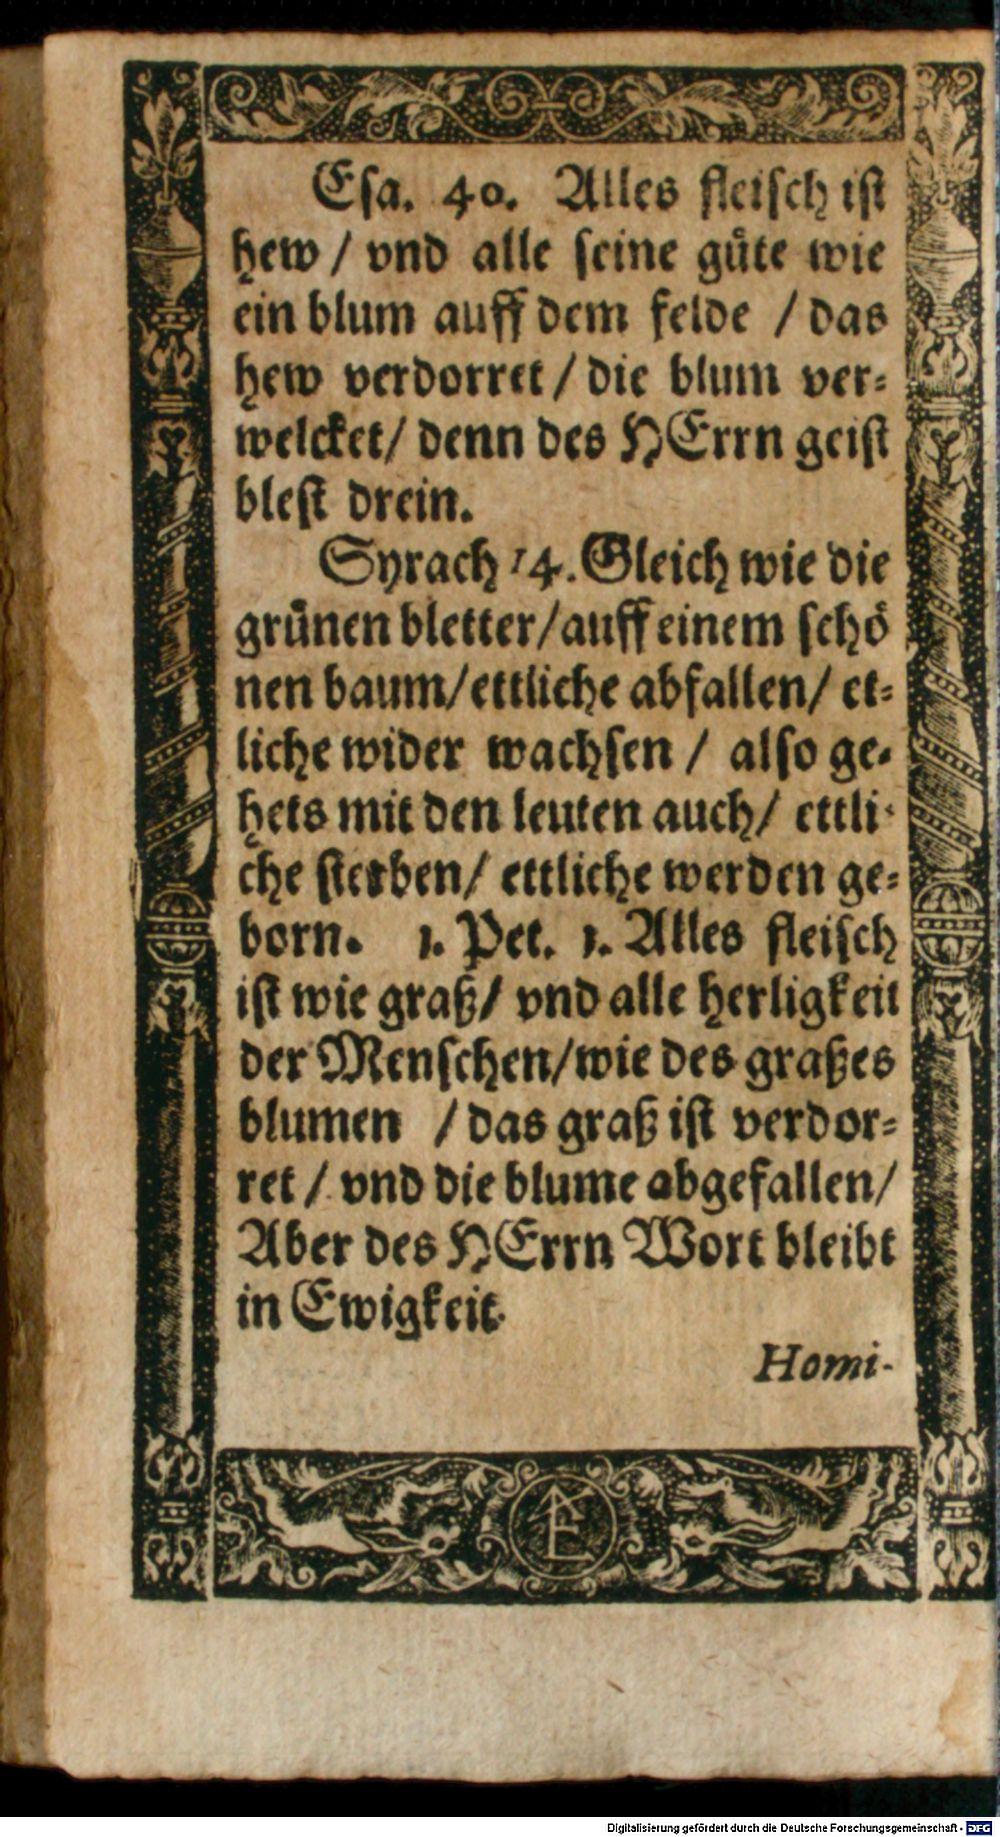 Esa. 40. Alles fleisch ist
hew / vnd alle seine guͤte wie
ein blum auff dem felde / das
hew verdorret / die blum ver-
welcket / denn des HErrn geist
blest drein.
Syrach 14. Gleich wie die
gruͤnen bletter / auff einem schoͤ
nen baum / ettliche abfallen / et-
liche wider wachsen / also ge-
hets mit den leuten auch / ettli-
che sterben / ettliche werden ge-
born. 1. Pet. 1. Alles fleisch
ist wie graß / vnd alle herligkeit
der Menschen / wie des graßes
blumen / das graß ist verdor-
ret / vnd die blume abgefallen /
Aber des HErrn Wort bleibt
in Ewigkeit.
Homi-
Digitalisierung gefördert durch die Deutsche Forschungsgemeinschaft - DFG